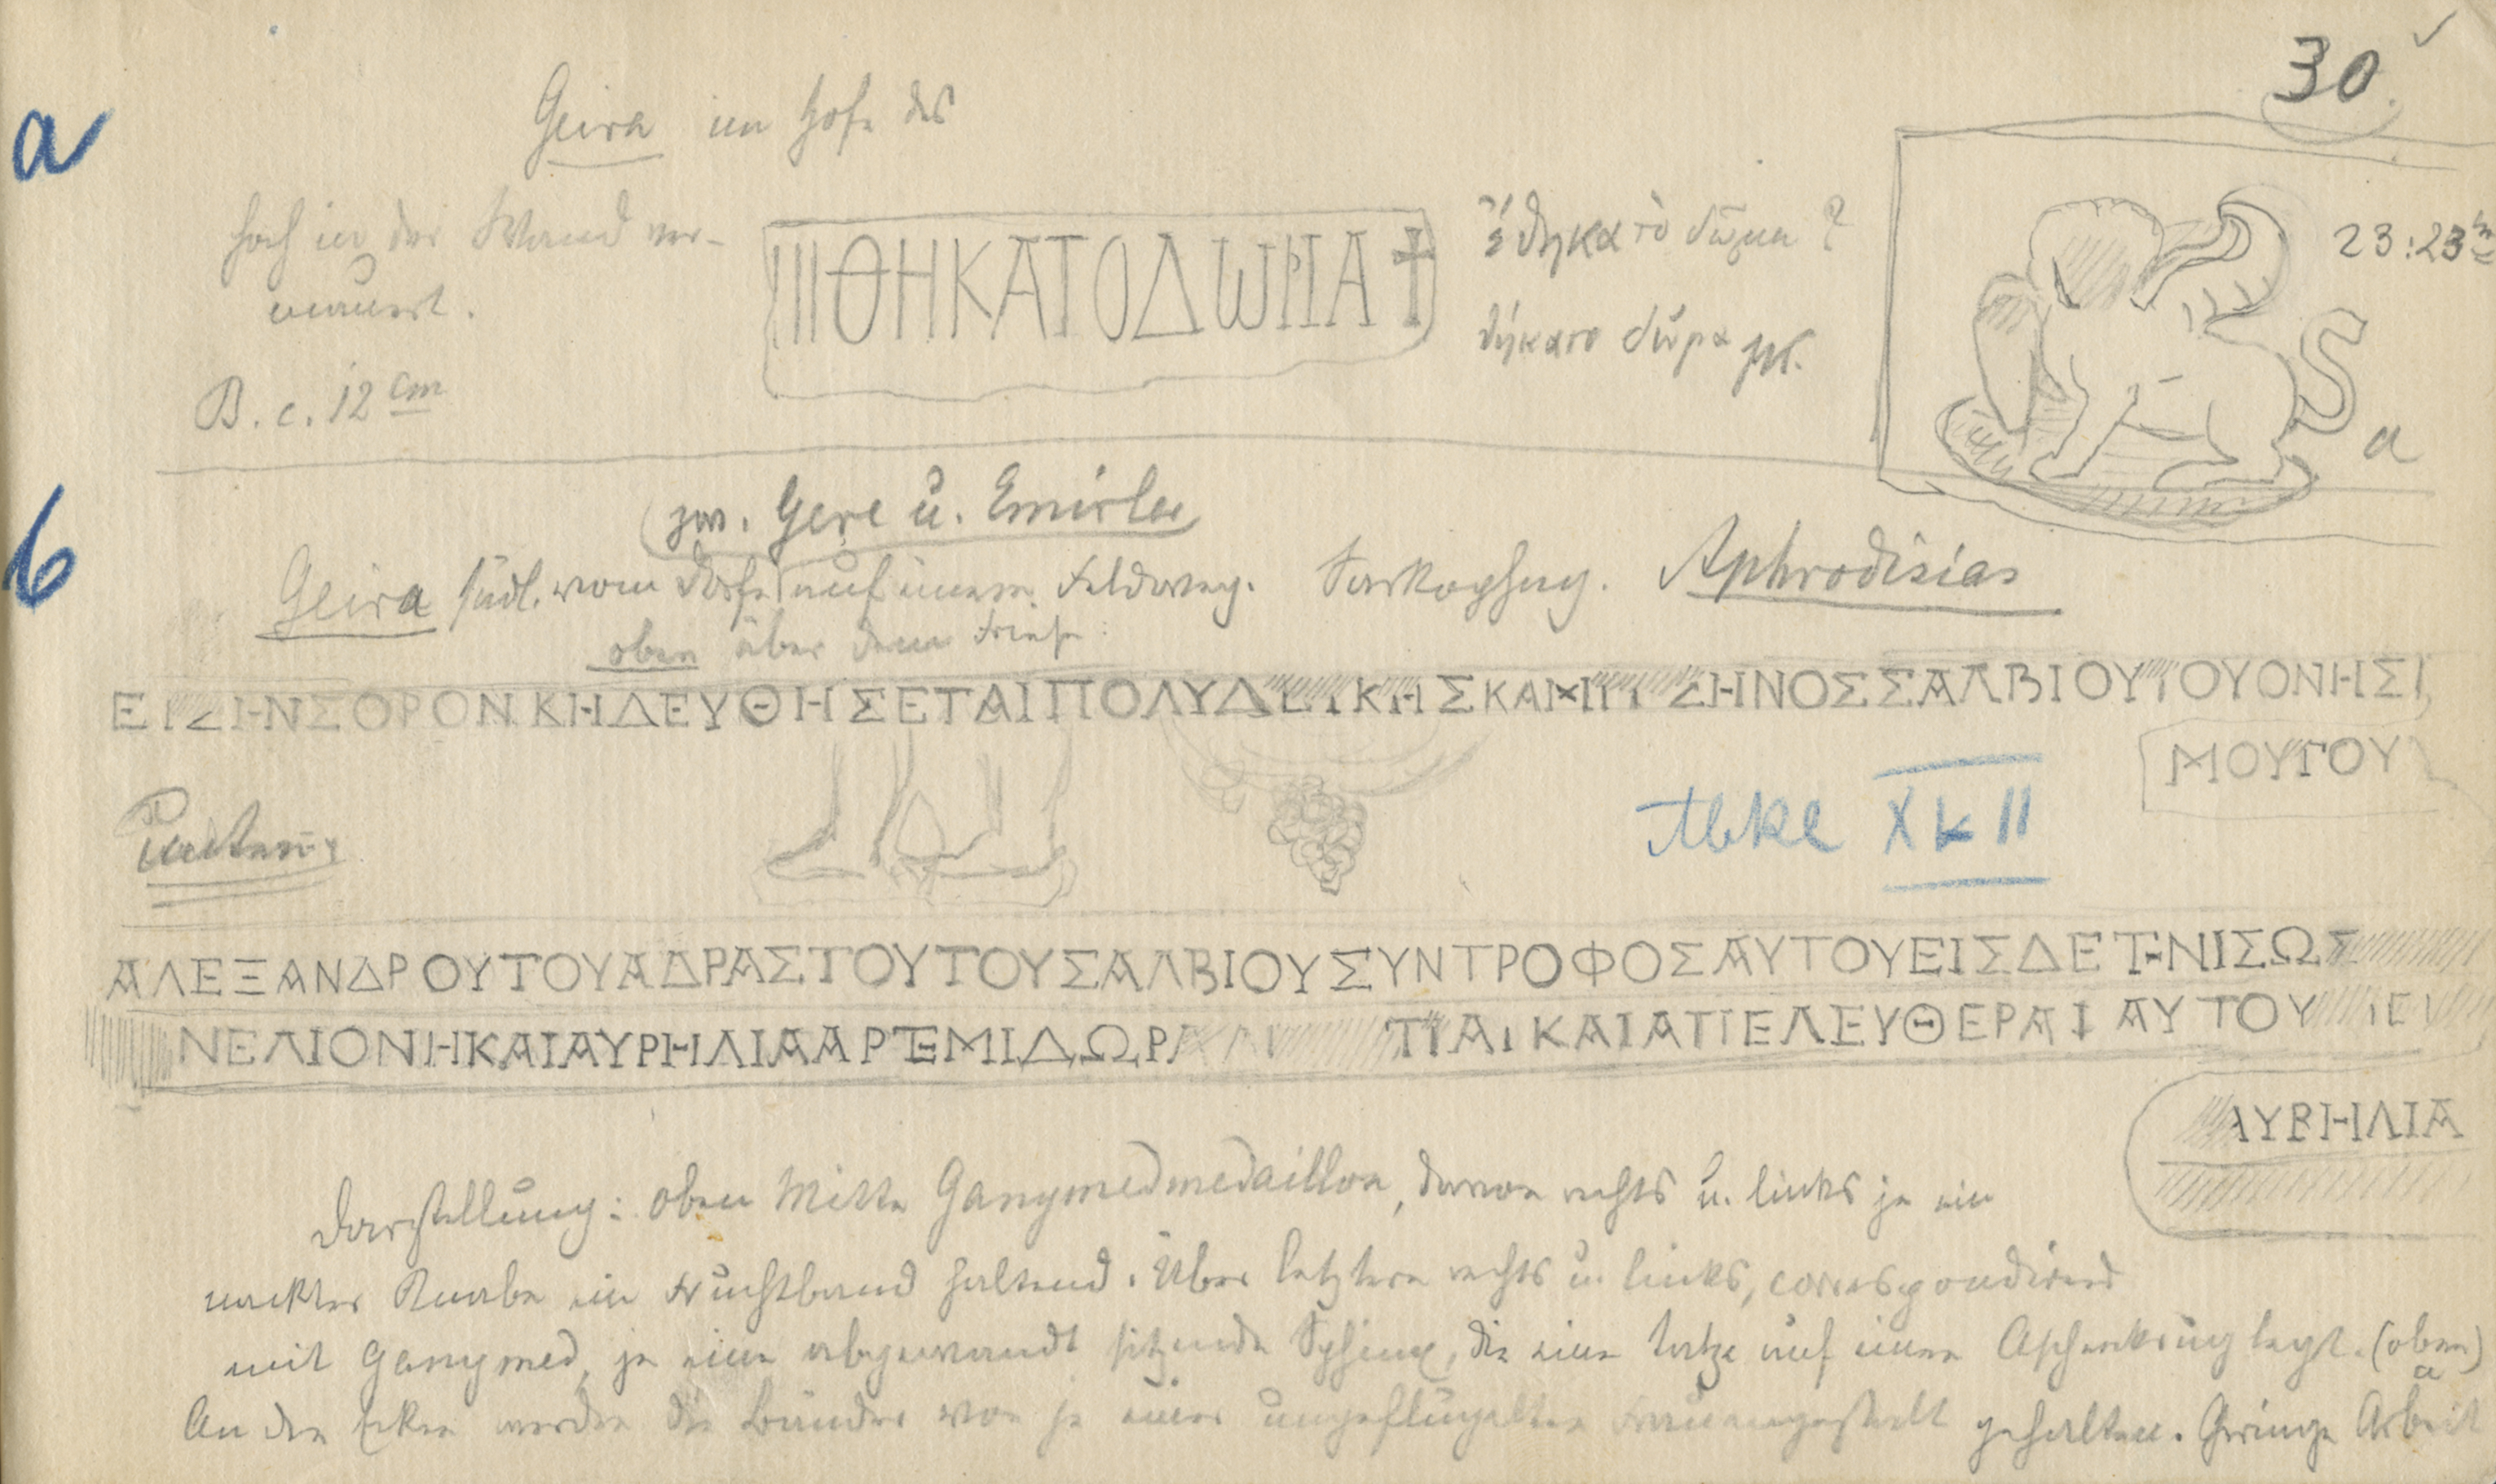 30
a
Geira im Hofe des
hoch in der Wand ver-
mauert.
B. c. 12 cm
ΘΗΚΑΤΟΔΩΜΑ †
ἔθηκα τὸ δῶμα ?
θήκατο δῶρα
23:23
a
b
zw. Gere u. Emirler
Geira südl. vom Dorfe auf einem Feldweg. Sarkophag. Aphrodisias
oben über dem Friese:
ΕΙΣΗΝΣΟΡΟΝΚΗΔΕΥΘΗΣΕΤΑΙΠΟΛΥΔΕΥΚΗΣΚΑΜΙΤ ΖΗΝΟΣΣΑΛΒΙΟΥΤΟΥΟΝΗΣΙ
ΜΟΥΤΟΥ
unten:
Abkl XK II
ΑΛΕΞΑΝΔΡΟΥΤΟΥΑΔΡΑΣΤΟΥΤΟΥΣΑΛΒΙΟΥΣΥΝΤΡΟΦΟΣΑΥΤΟΥΕΙΣΔΕΤΗΝΙΣΩΣ
ΝΕΛΙΟΝΗΚΑΙΑΥΡΗΛΙΑΑΡΤΕΜΙΔΩΡΑ ΠΑΙΚΑΙΑΠΕΛΕΥΘΕΡΑΙΑΥΤΟΥ
ΑΥΡΗΛΙΑ
Darstellung: oben Mitte Ganymedmedaillon, davon rechts u. links je ein
nackter Knabe ein Fruchtband haltend. Über letztere rechts u. links, correspondirend
mit Ganymed, je eine abgewandt sitzende Sphinx, die eine Tatze auf einen Aschenkrug legt. (oben a)
An den Ecken werden die Bänder von je einer ungeflügelten Frauengestalt gehalten. Geringe Arbeit